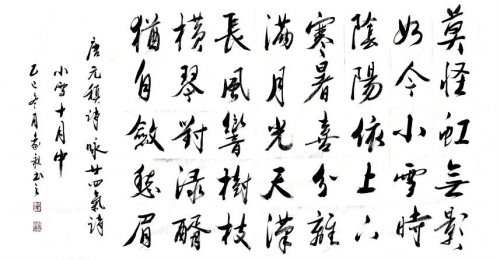 莫怪虹無影
如今小雪時
陰陽依上下
寒暑喜分離
滿月光天漢
長風響樹枝
橫琴對淥醑
猶自斂愁眉
唐元稹詩 咏廿四氣詩
小雪十月中
乙巳冬月書之